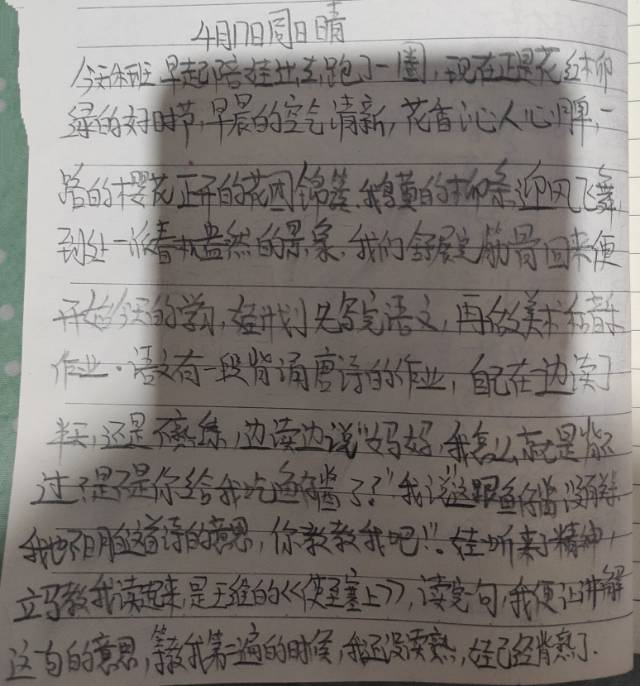 4月17日周日晴
今天休班早起陪娃出去跑了一圈,现在正是花红柳
绿的好时节,早晨的空气清新,花香沁人心脾,一
路的樱花正开的花团锦簇,鹅黄的柳条迎风飞舞,
到处一派春机盎然的景象。我们舒展完筋骨回来便
开始今天的学习,娃计划先写完语文,再做美术和音乐
作业。语文有一段背诵唐诗的作业,自己在边读了
半天,还是不熟练,边读边说"妈妈,我怎么就是背不
过?是不是你给我吃鱼籽酱了?"我说"这跟鱼籽酱没关系
我也不明白这首诗的意思,你教教我吧!"。娃听来了精神,
立马教我读起来,是王维的《使至塞上》,读完一句,我便让讲解
这句的意思,等教我第二遍的时候,我还没读熟,娃已经背熟了.